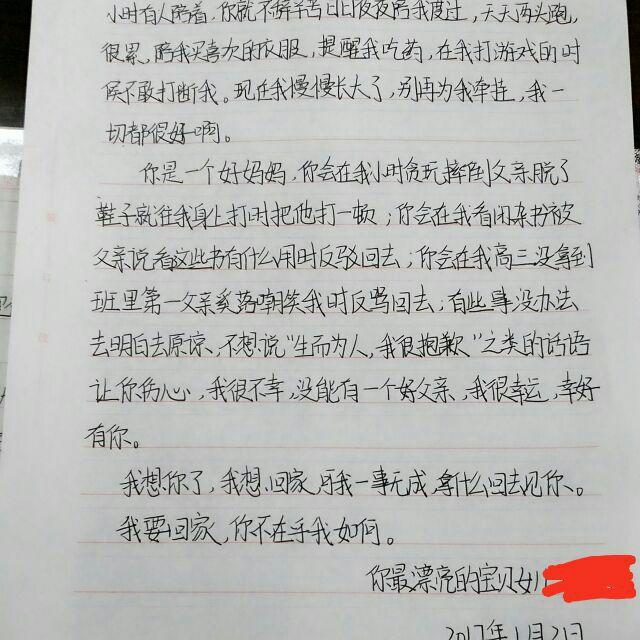 小时有人陪着，你就不辞辛苦日日夜夜陪我度过，天天两头跑，
很累，陪我买喜欢的衣服，提醒我吃药，在我打游戏的时
候不敢打断我。现在我慢慢长大了，别再为我牵挂，我一
切都很好啊。
你是一个好妈妈，你会在我小时贪玩摔倒父亲脱了
鞋子就往我身上打时把他打一顿；你会在我看闲杂书被
父亲说看这些书有什么用时反驳回去；你会在我高三没拿到
班里第一父亲奚落嘲笑我时反骂回去；有些事没办法
去明白去原谅，不想说“生而为人，我很抱歉”之类的话语
让你伤心，我很不幸，没能有一个好父亲，我很幸运，幸好
有你。
我想你了，我想回家，可我一事无成，拿什么回去见你、。
我要回家，你不在乎我如何。
你最漂亮的宝贝女儿
2017年1月21日